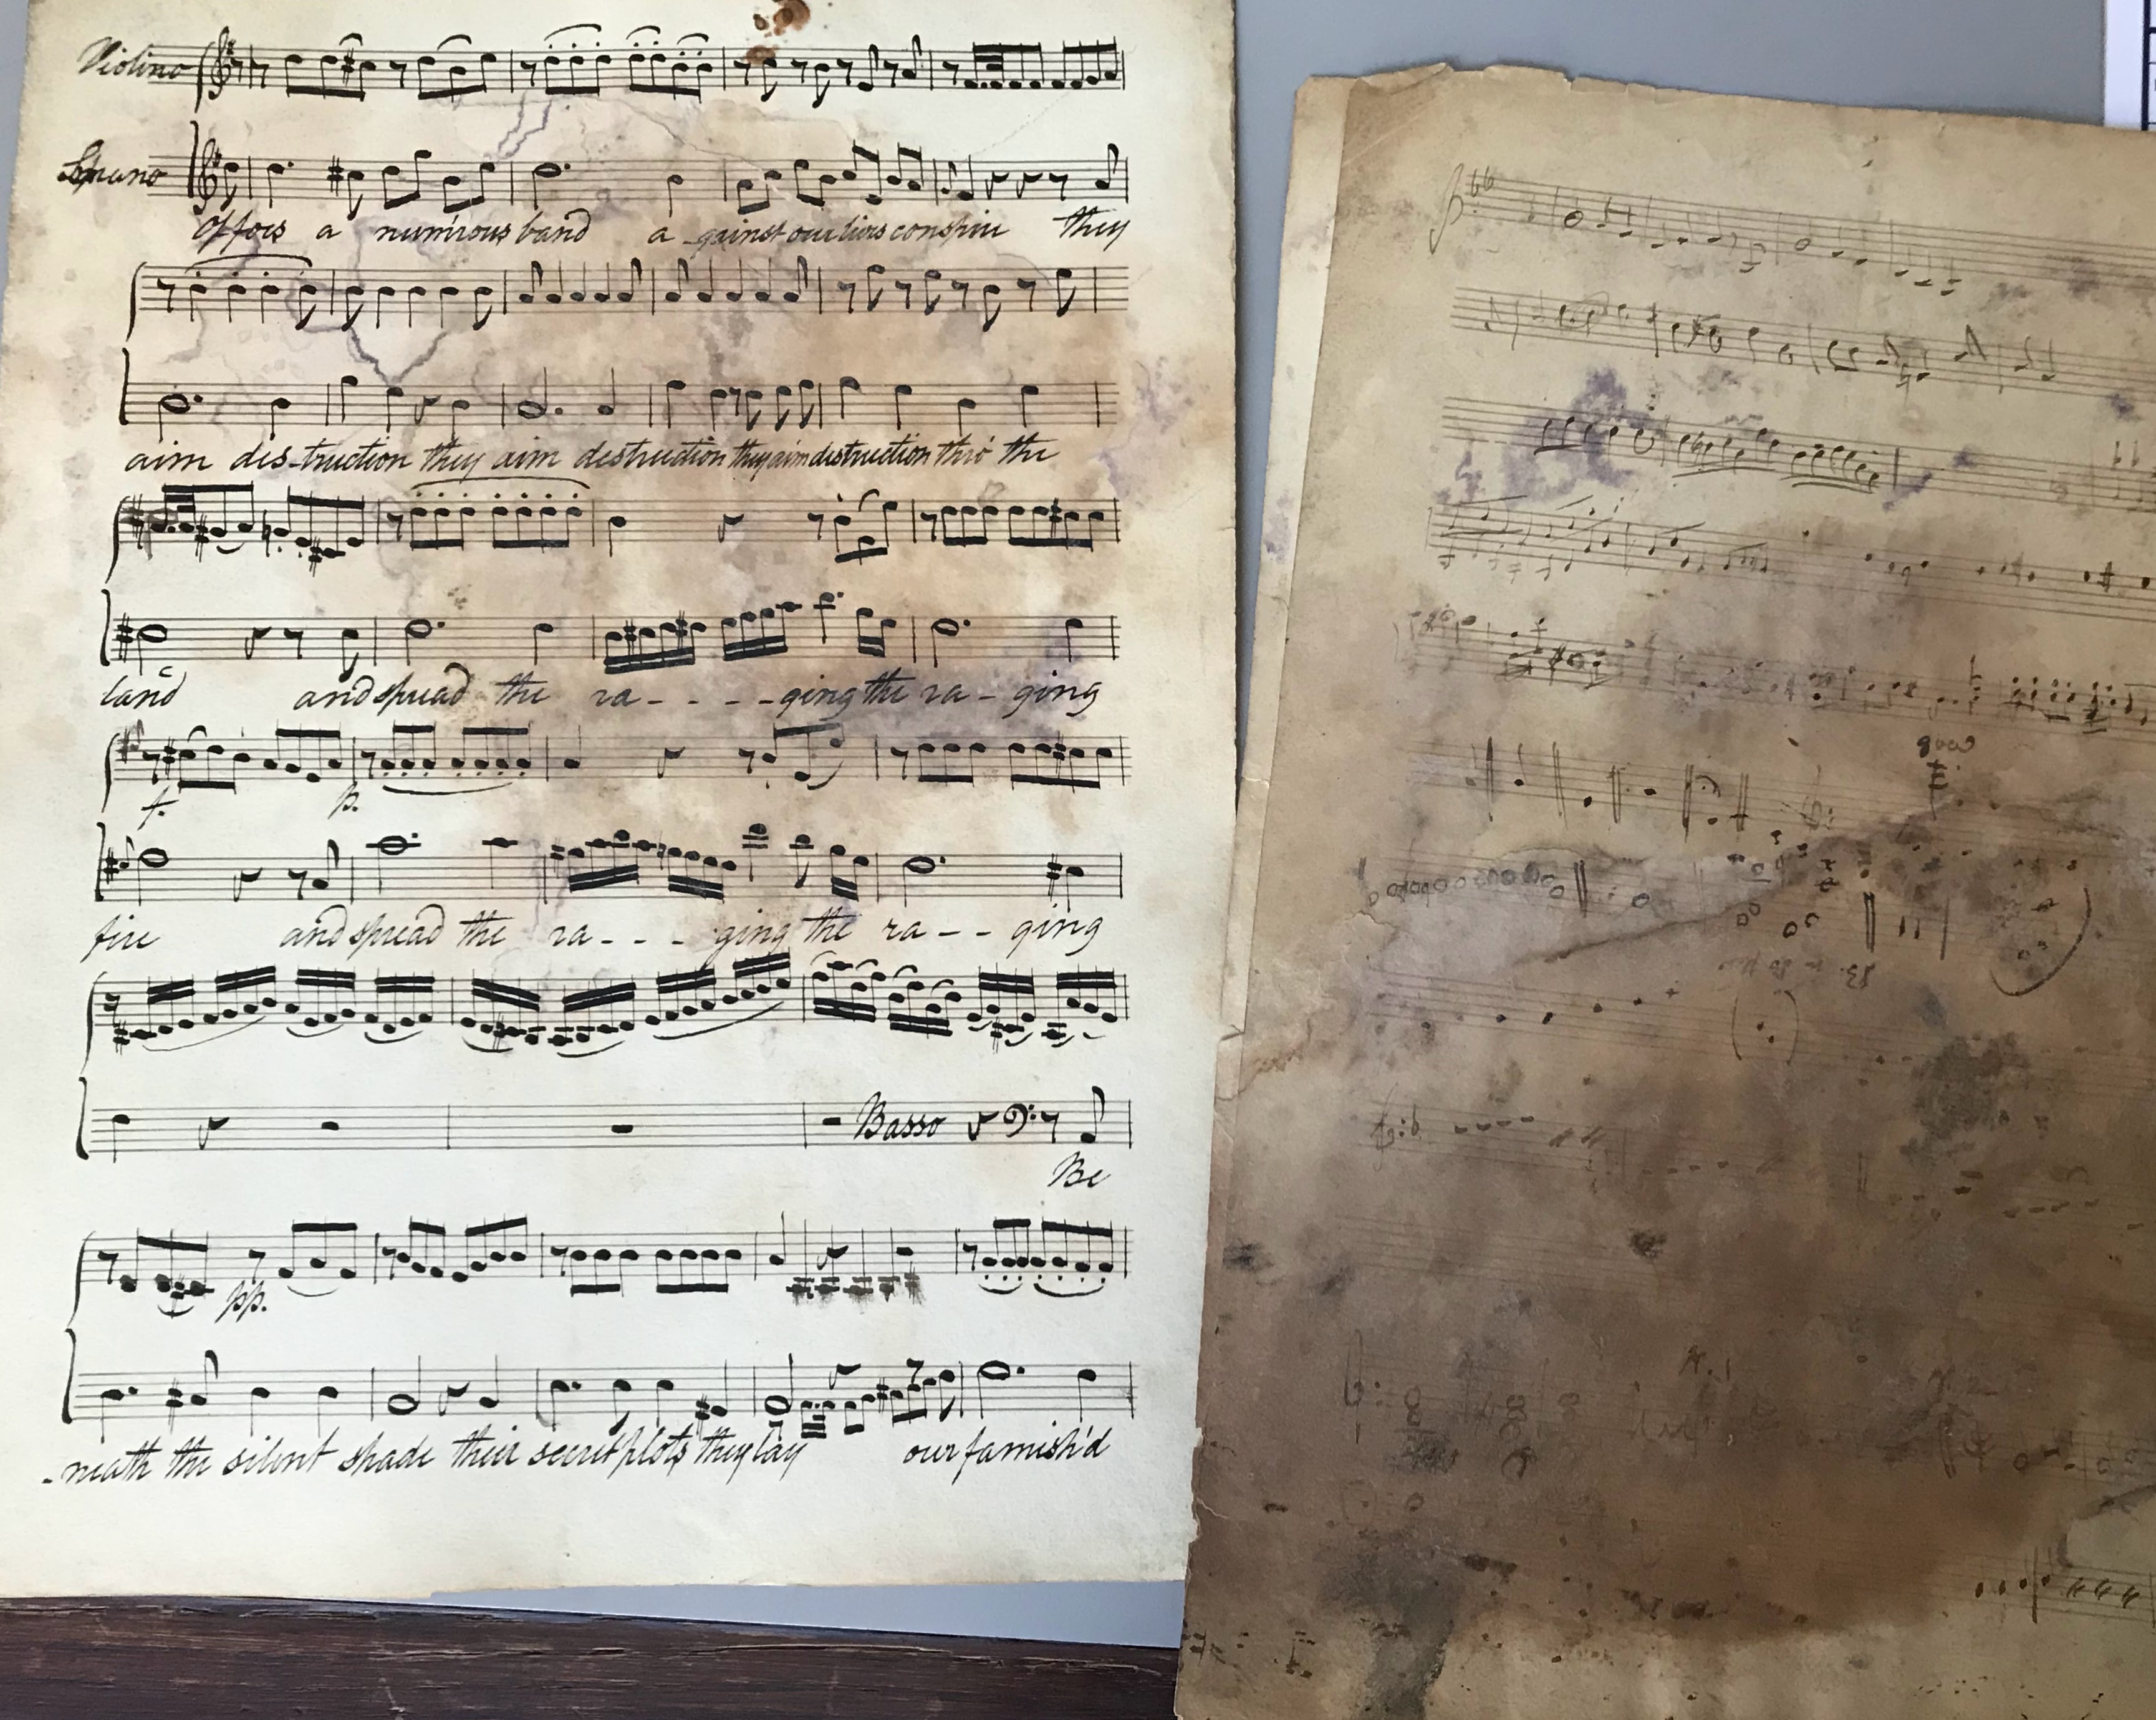 Violino
Soprano
Of foes a num'rous band a - gainst our lives conspire they
aim des - truction they aim destruction they aim destruction thro' the
land and spread the ra - - - - ging the ra - ging
f. p.
fire and spread the ra - - - ging the ra - - ging
Basso
Be
pp.
- neath the silent shade their secret plots they lay our famish'd